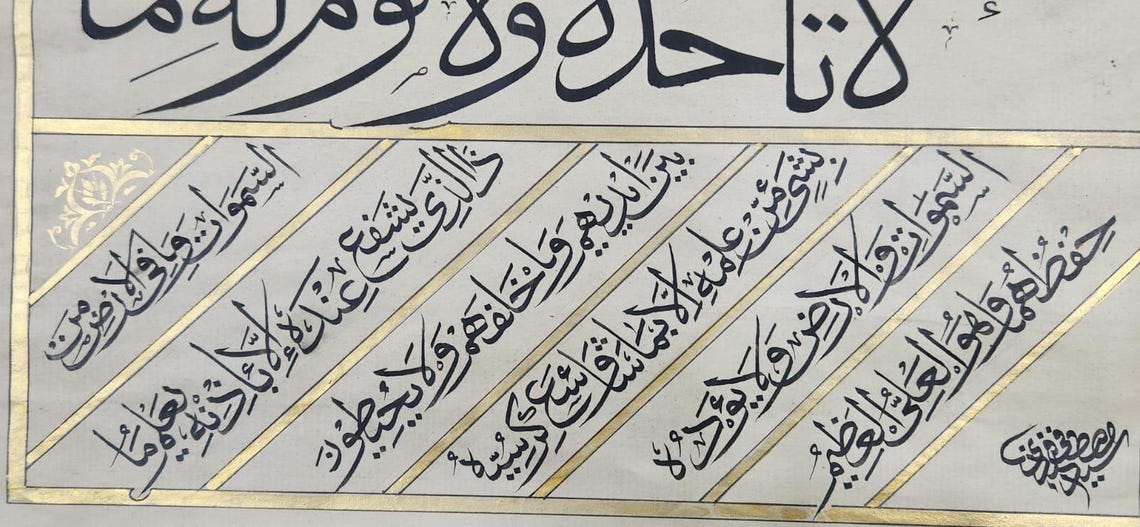 لا تاخذه ولا نوم له ما
السموات وما فى الارض من
ذالذى يشفع عنده الا باذنه يعلم ما
بين ايديهم وما خلفهم ولا يحيطون
بشئ من علمه الا بما شاء وسع كرسيه
السموات والارض ولا يؤده
حفظهما وهو العلى العظيم